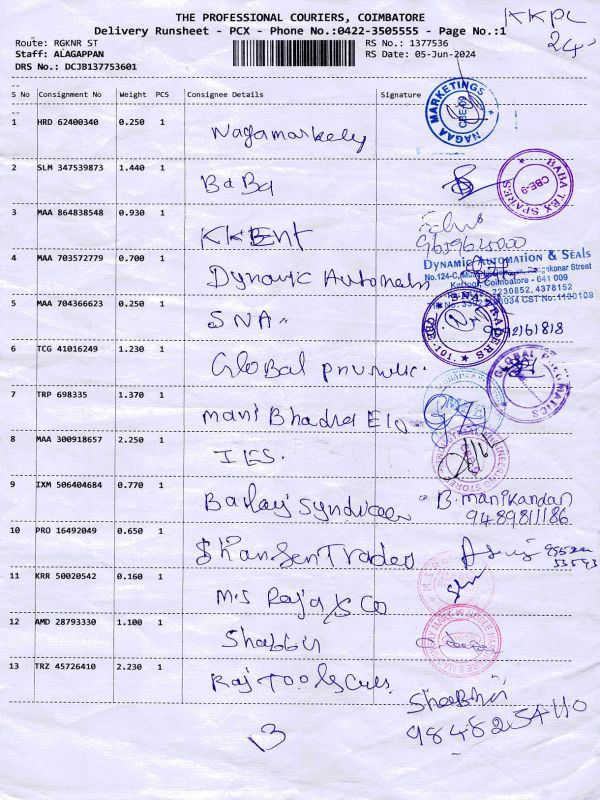 THE PROFESSIONAL COURIERS, COIMBATORE
Delivery Runsheet - PCX - Phone No.:0422-3505555 - Page No.:1
KKPL
24-
Route: RGKNR ST
RS No.: 1377536
Staff: ALAGAPPAN
RS Date: 05-Jun-2024
DRS No.: DCJB137753601
S No Consignment No Weight PCS Consignee Details Signature
1 HRD 62400340 0.250 1
NAGAA MARKETINGS CBE-9
2 SLM 347539873 1.440 1 BaBa
BABA TEX SPARES CBE-9
3 MAA 864838548 0.930 1 KKBEnt
4 MAA 703572779 0.700 1 Dynamic Automats
DYNAMIC AUTOMATION & SEALS
Coimbatore - 641 009
2230852, 4378152
5 MAA 704366623 0.250 1 SNA
SNA TRADERS
6 TCG 41016249 1.230 1 Global
GLOBAL PNEUMATICS
7 TRP 698335 1.370 1 Mani Bhadra
8 MAA 300918657 2.250 1 IES.
9 IXM 506404684 0.770 1 Balaji Syndicate
B. Manikandan
9489811186
10 PRO 16492049 0.650 1 Shansen Trades
11 KRR 50020542 0.160 1 M.S Raja & Co
12 AMD 28793330 1.100 1 Shabbir
13 TRZ 45726410 2.230 1 Raj Tools
Shabbir
13